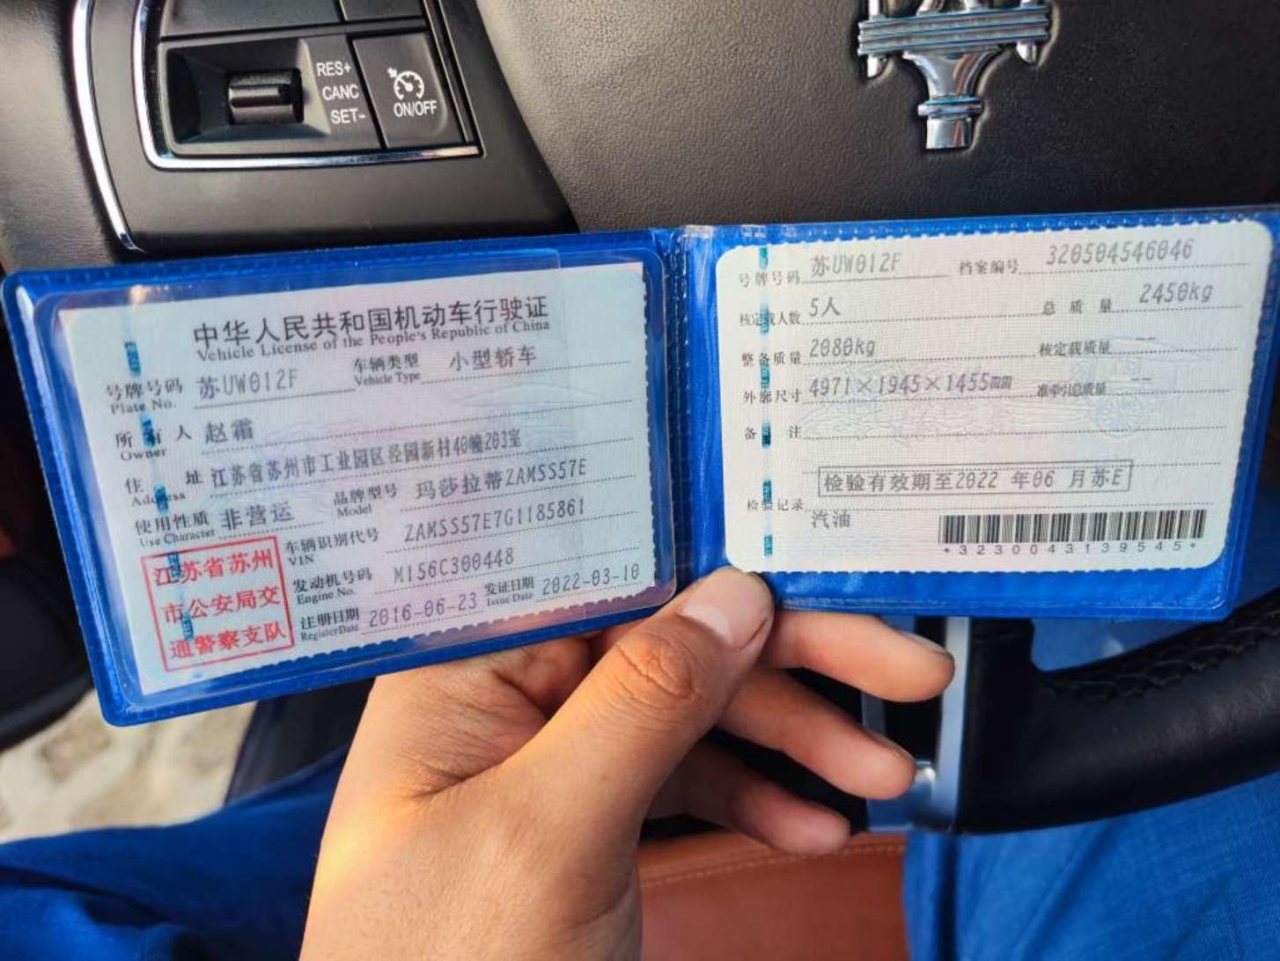 RES+
CANC
SET-
ON/OFF
中华人民共和国机动车行驶证
Vehicle License of the People's Republic of China
号牌号码 苏UW012F 车辆类型 小型轿车
Plate No. Vehicle Type
所有人 赵霜
Owner
住址 江苏省苏州市工业园区泾园新村40幢203室
Address
使用性质 非营运 品牌型号 玛莎拉蒂ZAMSS57E
Use Character Model
江苏省苏州
市公安局交
通警察支队
车辆识别代号 ZAMSS57E7G1185861
VIN
发动机号码 M156C300448
Engine No.
注册日期 2016-06-23 发证日期 2022-03-10
Register Date Issue Date
号牌号码 苏UW012F 档案编号 320504546046
核定载人数 5人 总质量 2450kg
整备质量 2080kg 核定载质量 --
外廓尺寸 4971×1945×1455mm 准牵引总质量 --
备注
检验有效期至2022 年06 月苏E
检验记录
汽油
*3230043139545*